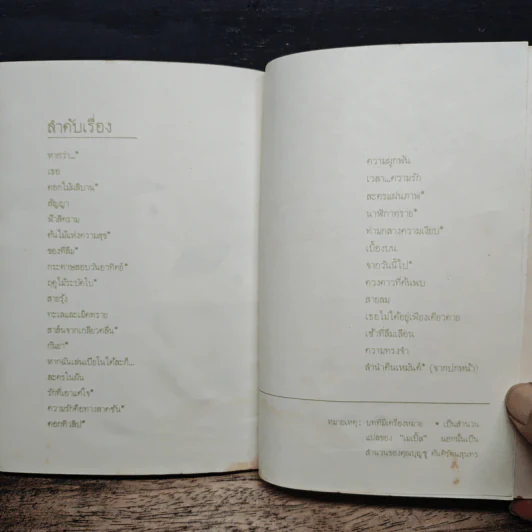 ลำดับเรื่อง
หากว่า...*
เธอ
ดอกไม้เสี่บาน*
สัญญา
ฟ้าสีคราม
ต้นไม้แห่งความสุข*
ของที่ลืม*
กระดาษสอบวันอาทิตย์*
ฤดูใบไม้ระบัดใบ*
สายรุ้ง
ทะเลและเม็ดทราย
สาส์นจากเกลียวคลื่น*
กันยา*
หากฉันเล่นเปียโนได้ละก็...
ละครในฝัน
รักที่เยาแค่ใจ*
ความรักคือทางลาดชัน*
ดอกทิวลิป*
ความผูกพัน
เวลา...ความรัก
ละครแผ่นภาพ*
นาฬิกาทราย*
ท่ามกลางความเงียบ*
เบื้องบน
จากวันนี้ไป*
ดวงดาวที่ค้นพบ
สายลม
เธอไม่ได้อยู่เพียงเดียวดาย
เช้าที่ลืมเลือน
ความทรงจำ
ลำนำคืนเหมันต์* (จากปกหน้า)
หมายเหตุ: บทที่มีเครื่องหมาย * เป็นสำนวน
แปลของ "เมเปิ้ล" นอกนั้นเป็น
สำนวนของคุณบุญชู ตันติรัตนสุนทร